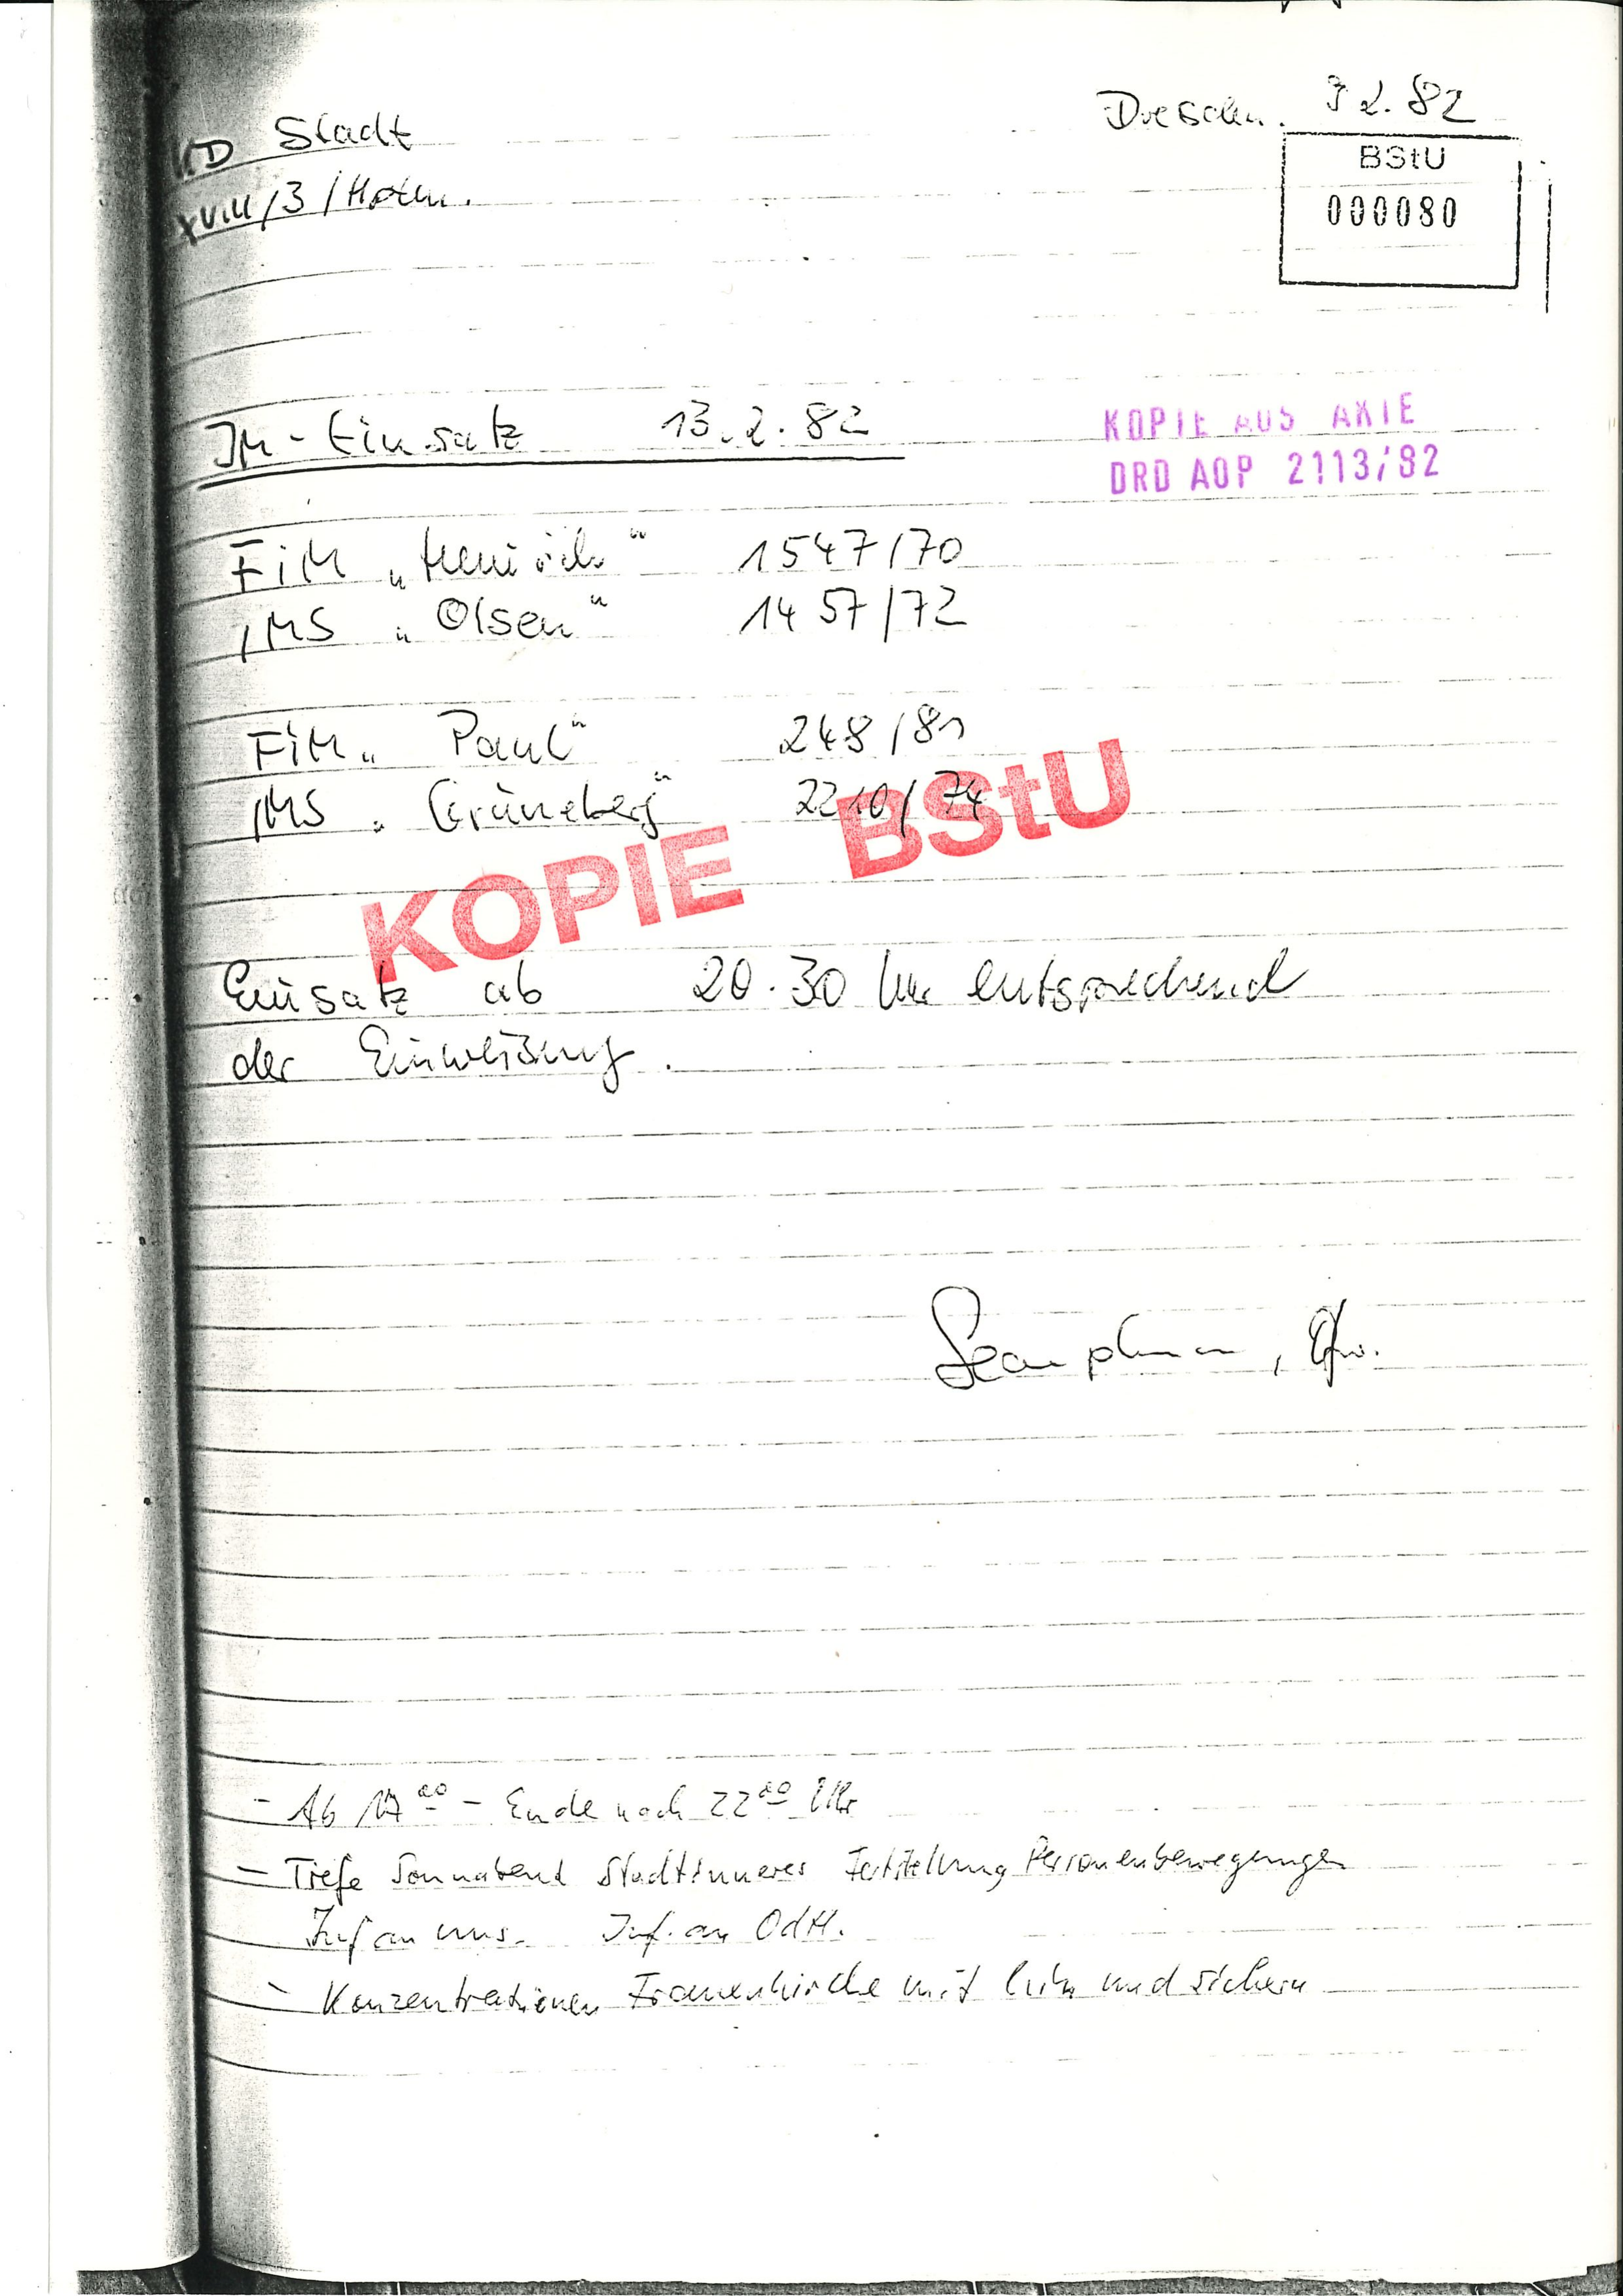 KD Stadt
XVIII/3/Hohn.
Dresden. 9 2. 82
BStU
000080
IM-Einsatz 13.2.82
KOPIE AUS AKTE
DRD AOP 2113/82
FIM „Heinrich“ 1547/70
IMS „Olsen“ 1457/72
FIM „Paul“ 248/81
IMS „Grüneberg“ 2210/74
KOPIE BStU
Einsatz ab 20.30 Uhr entsprechend
der Einweisung.
- Ab 17⁰⁰ - Ende nach 22⁰⁰ Uhr
- Tiefe Sonnabend Stadtinneres Feststellung Personenbewegungen
Inf an uns. Inf. an OdH.
- Konzentrationen Frauenkirche mit und sichern